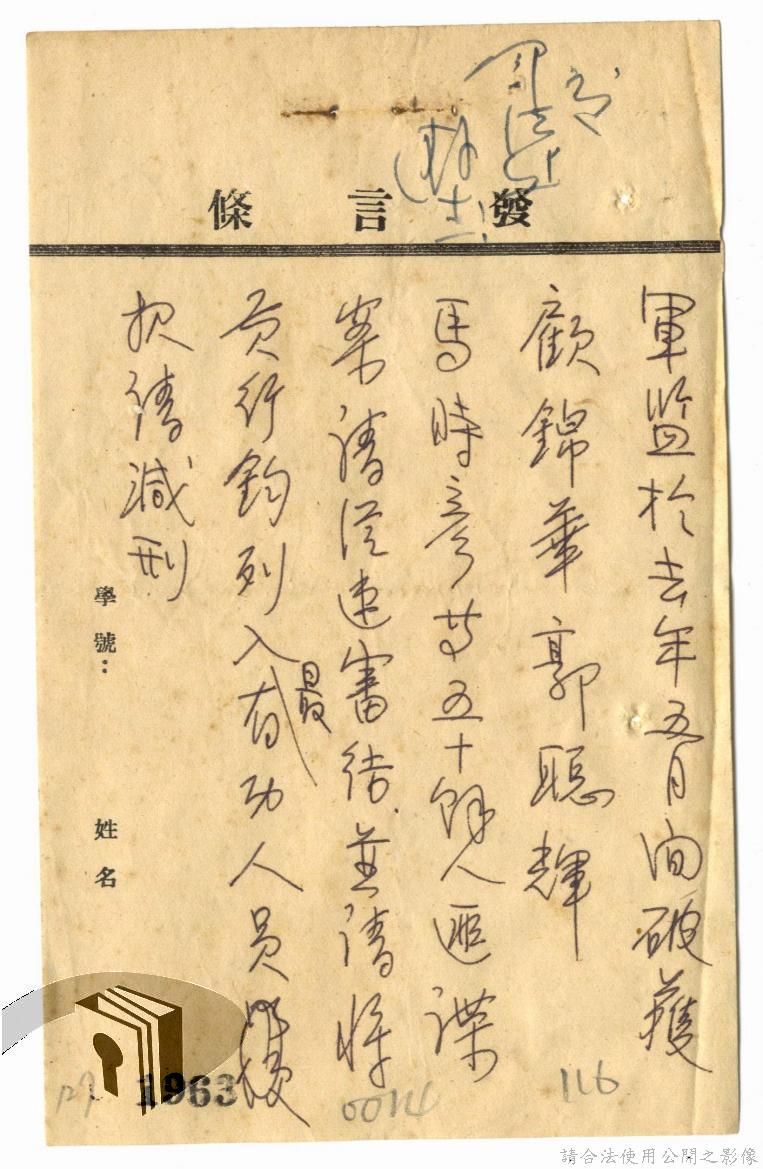 發言條
軍監於去年五月间破獲
顧錦華郭聰輝
馬時彥等五十餘人匪諜
案請從速審結並請將
黃行鈞列入最有功人員
減刑
學號：
姓名
1963
0014
116
127
請合法使用公開之影像